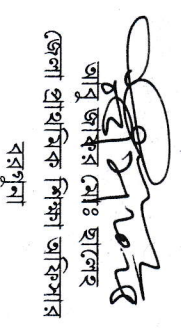 আবু জাফর মোঃ ছালেহ
জেলা প্রাথমিক শিক্ষা অফিসার
বরগুনা